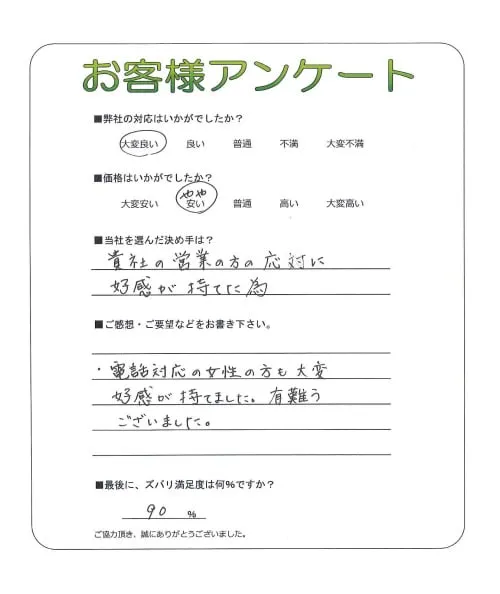 お客様アンケート
■弊社の対応はいかがでしたか？
大変良い 良い 普通 不満 大変不満
■価格はいかがでしたか？
大変安い やや安い 普通 高い 大変高い
■当社を選んだ決め手は？
貴社の営業の方の応対に
好感が持てた為
■ご感想・ご要望などをお書き下さい。
・電話対応の女性の方も大変
好感が持てました。有難う
ございました。
■最後に、ズバリ満足度は何％ですか？
90 ％
ご協力頂き、誠にありがとうございました。